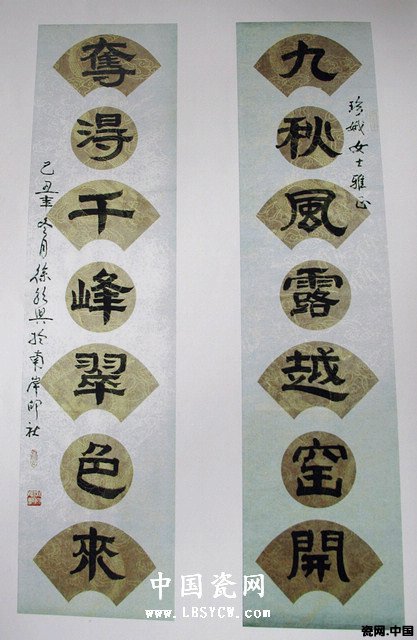 九秋風露越窑開
珍娥女士雅正
奪得千峰翠色來
己丑年冬月徐興於南岸印社
中国瓷网
WWW.LBSYCW.COM
瓷网.中国